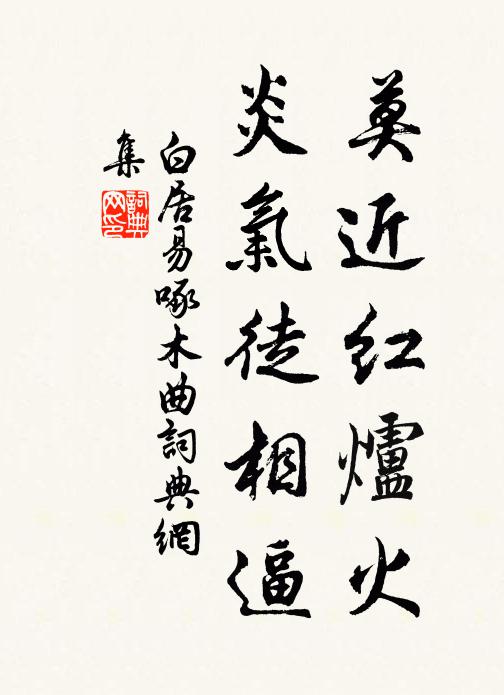 莫近紅爐火
炎氣徒相逼
白居易啄木曲詞典網
集
詞典
网